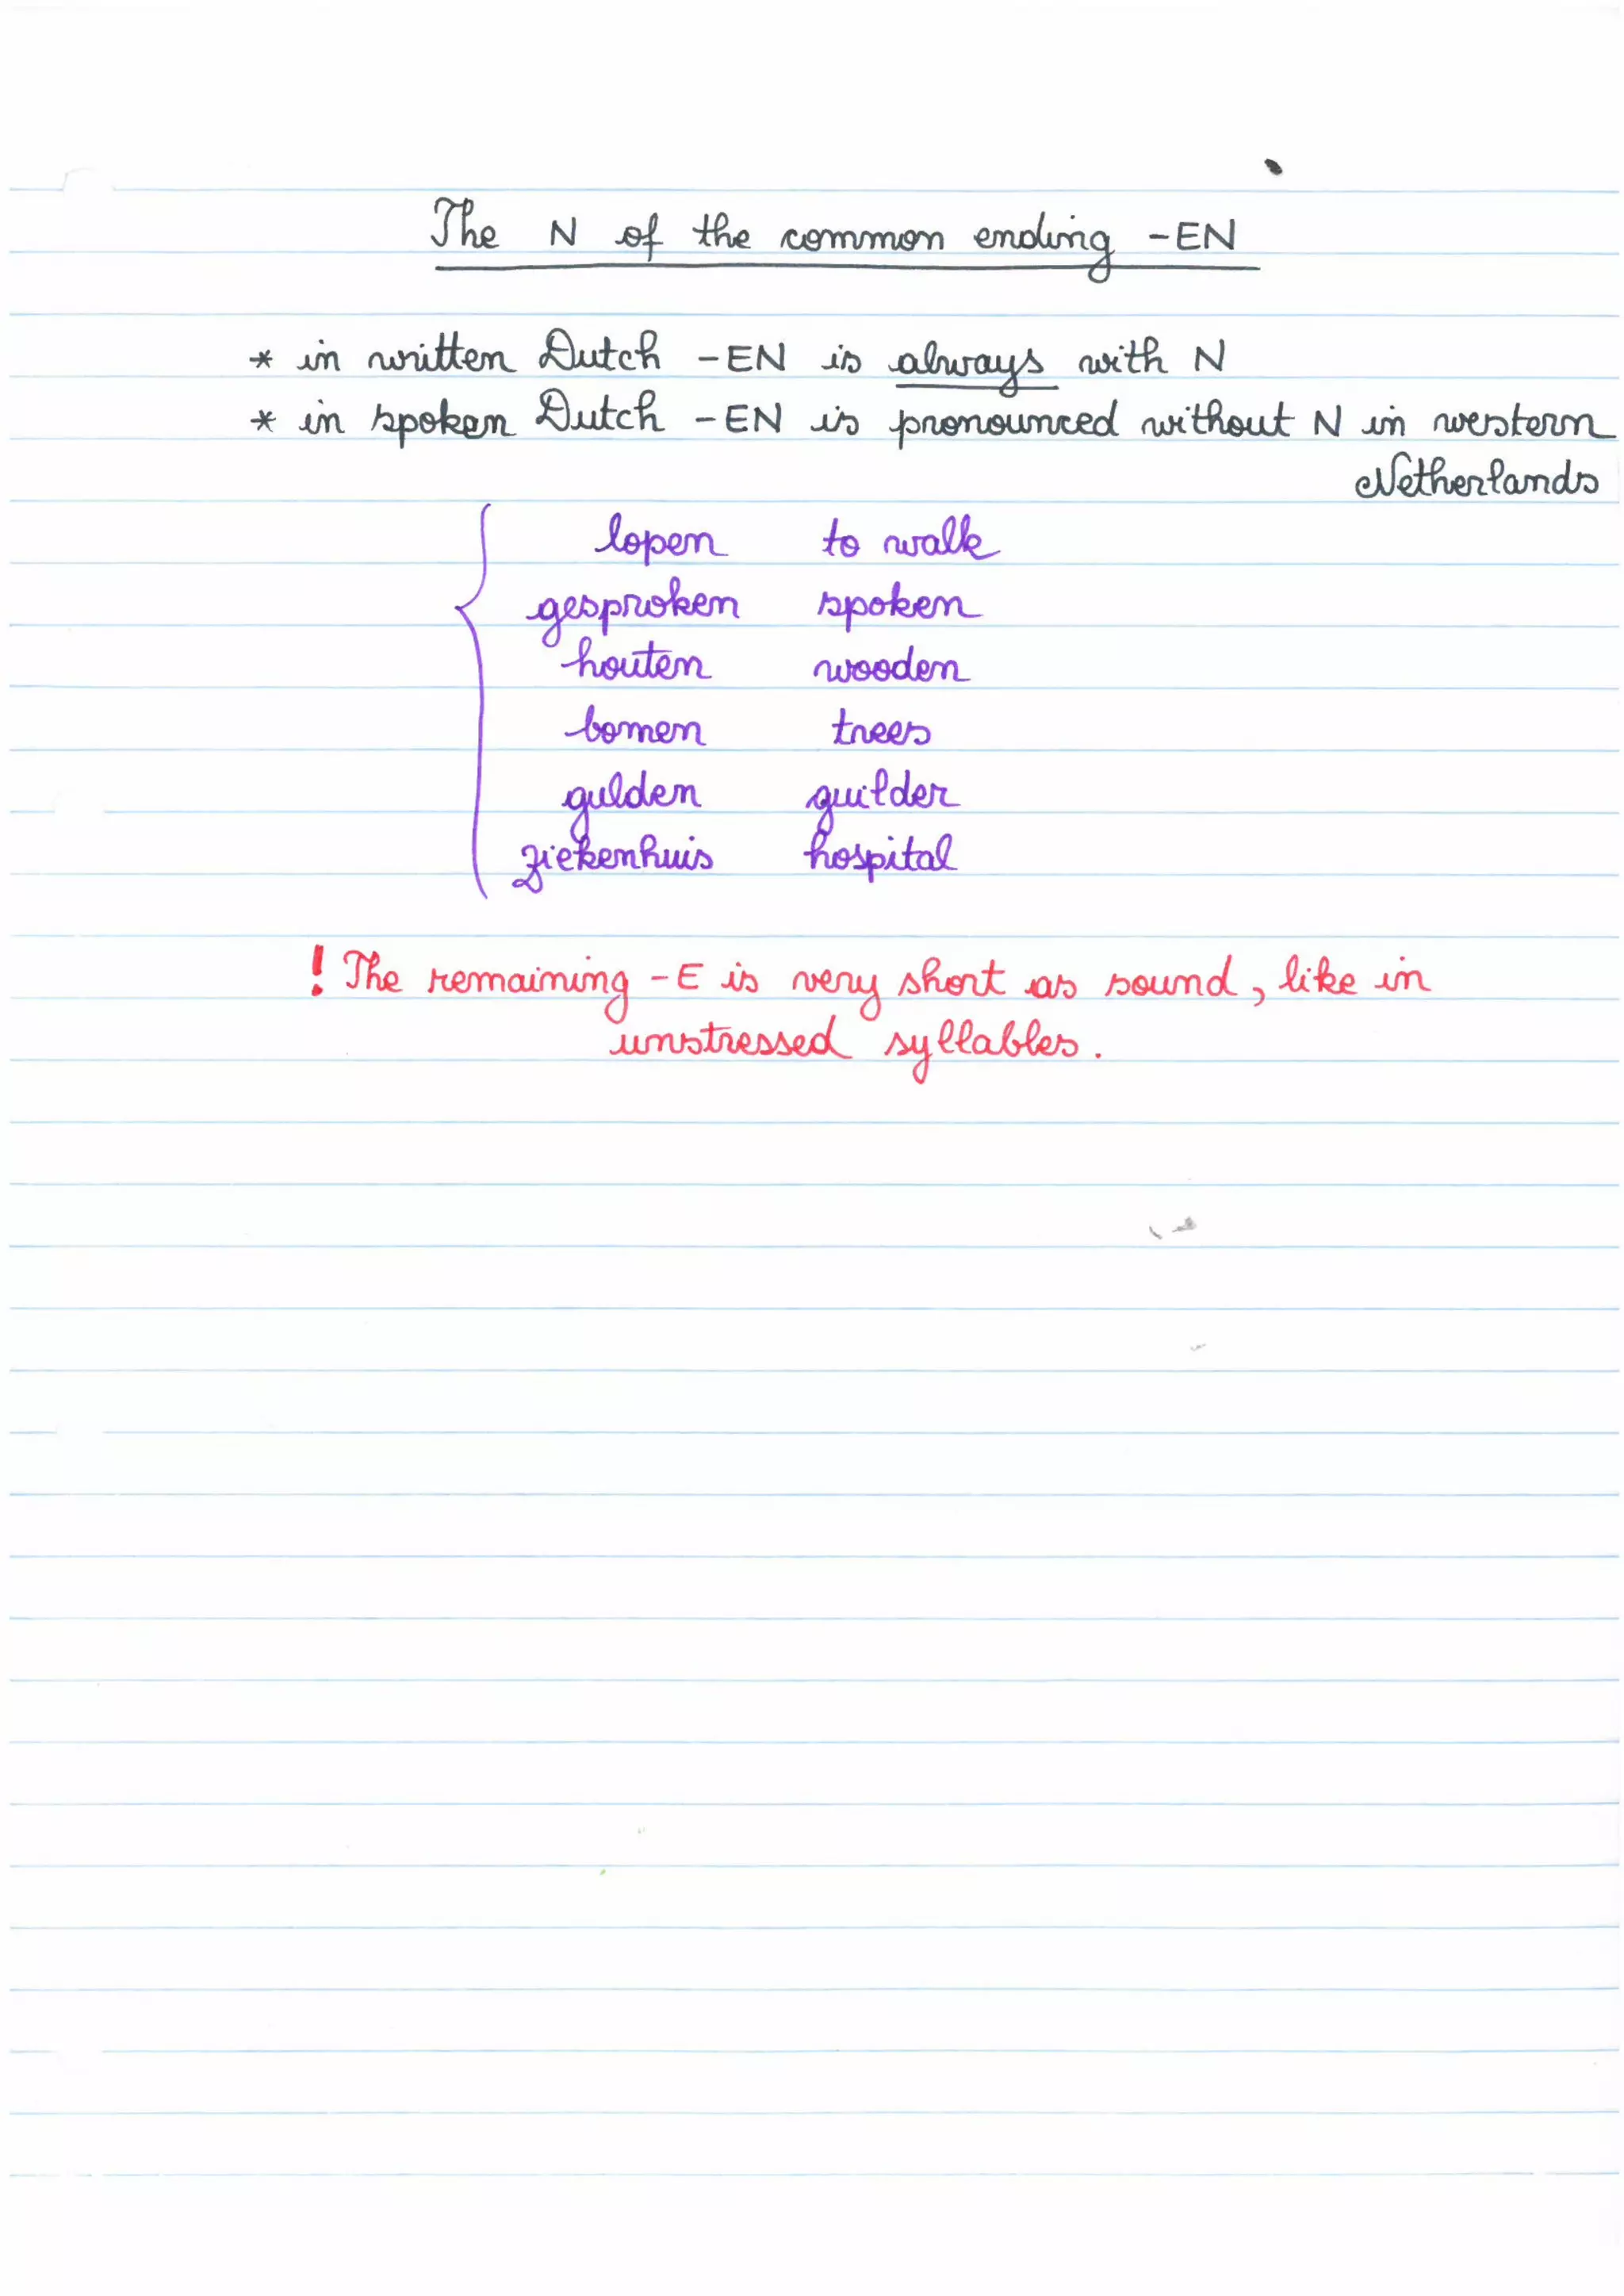 The N of the common ending -EN
* in written Dutch -EN is always with N
* in spoken Dutch -EN is pronounced without N in western
Netherlands
lopen to walk
gesproken spoken
houten wooden
bomen trees
gulden guilder
ziekenhuis hospital
! The remaining -E is very short as sound, like in
unstressed syllables.